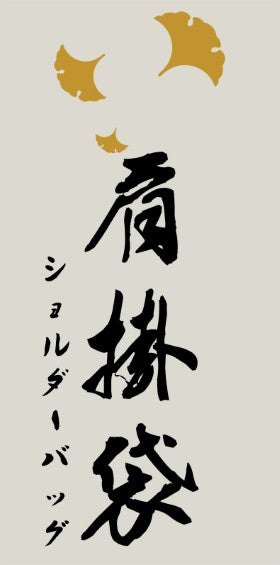 肩掛袋
ショルダーバッグ